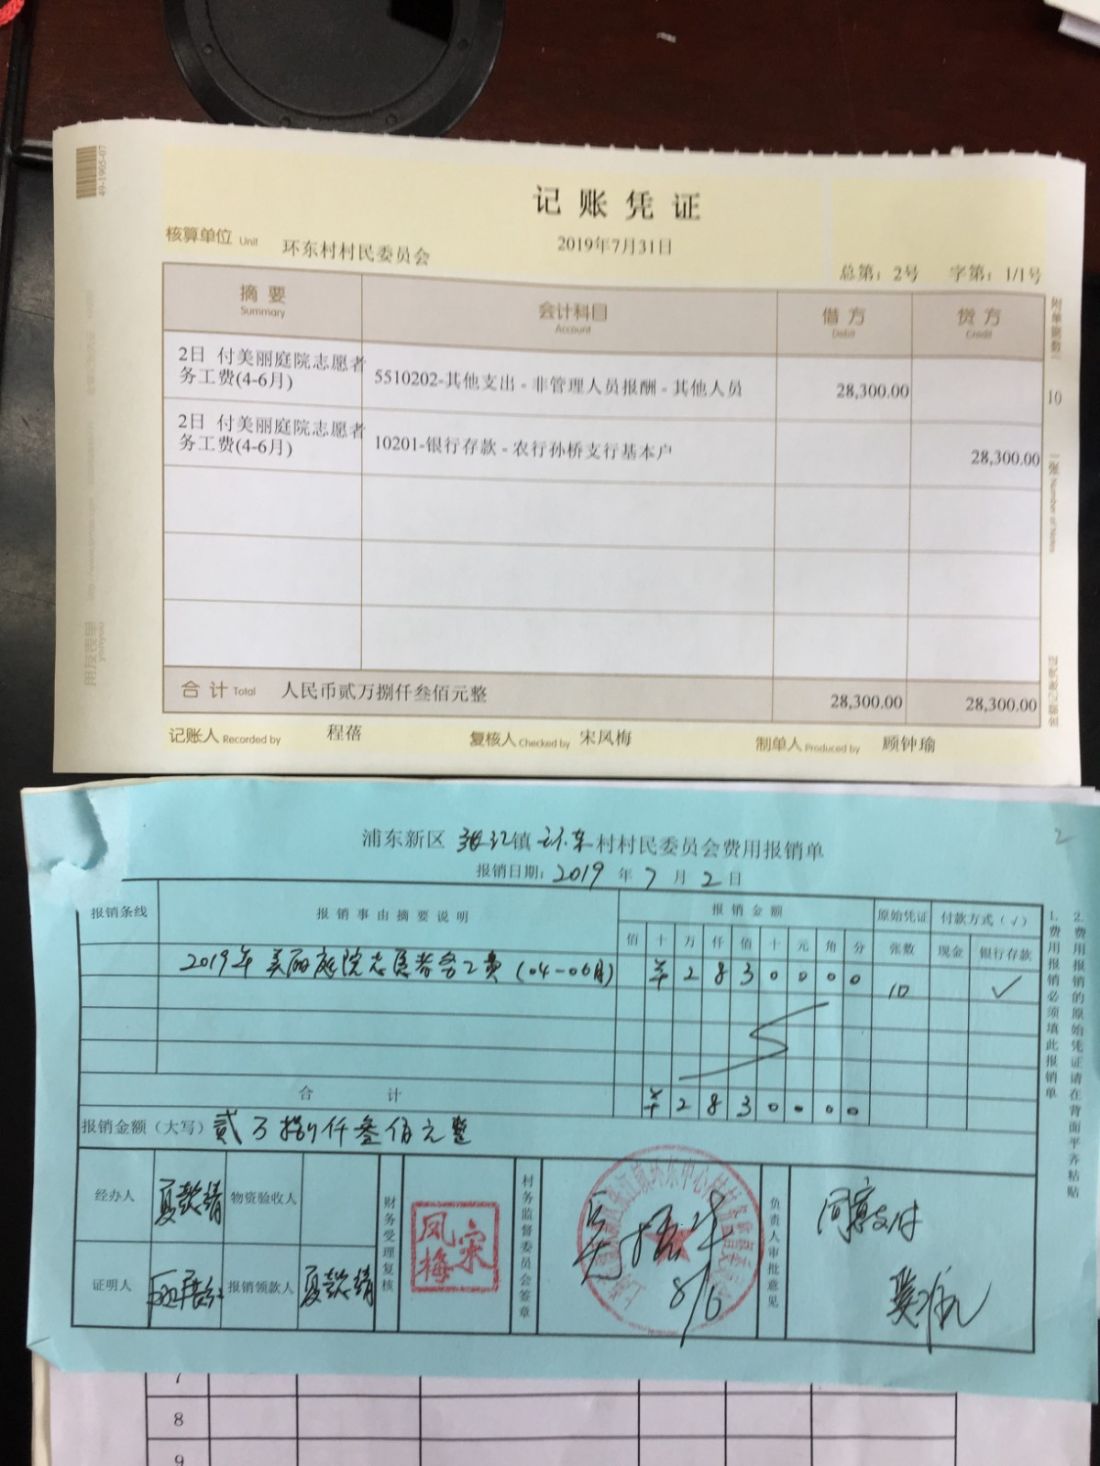 49-1905-07
记账凭证
核算单位 Unit 环东村村民委员会
2019年7月31日
总第：2号 字第：1/1号
摘要 会计科目 借方 贷方
Summary Account Debit Credit
2日 付美丽庭院志愿者
务工费(4-6月) 5510202-其他支出 - 非管理人员报酬 - 其他人员 28,300.00
2日 付美丽庭院志愿者
务工费(4-6月) 10201-银行存款 - 农行孙桥支行基本户 28,300.00
合计 Total 人民币贰万捌仟叁佰元整 28,300.00 28,300.00
记账人 Recorded by 程蓓 复核人 Checked by 宋凤梅 制单人 Produced by 顾钟瑜
附单据数 10 张
用友表单
yonyou
2
浦东新区 张江镇 环东村村民委员会费用报销单
报销日期：2019年7月2日
报销条线 报销事由摘要说明 报销金额 原始凭证 付款方式（√）
佰 十 万 仟 佰 十 元 角 分 张数 现金 银行存款
2019年美丽庭院志愿者务工费(04-06月) ¥ 2 8 3 0 0 0 0 10 √
合计 ¥ 2 8 3 0 0 0 0
报销金额（大写）贰万捌仟叁佰元整
经办人 物资验收人 财务受理复核 村务监督委员会签章 负责人审批意见
宋凤梅
8/6
同意支付
证明人 报销领款人
1.费用报销必须填此报销单
2.费用报销的原始凭证请在背面平齐粘贴
7
8
9